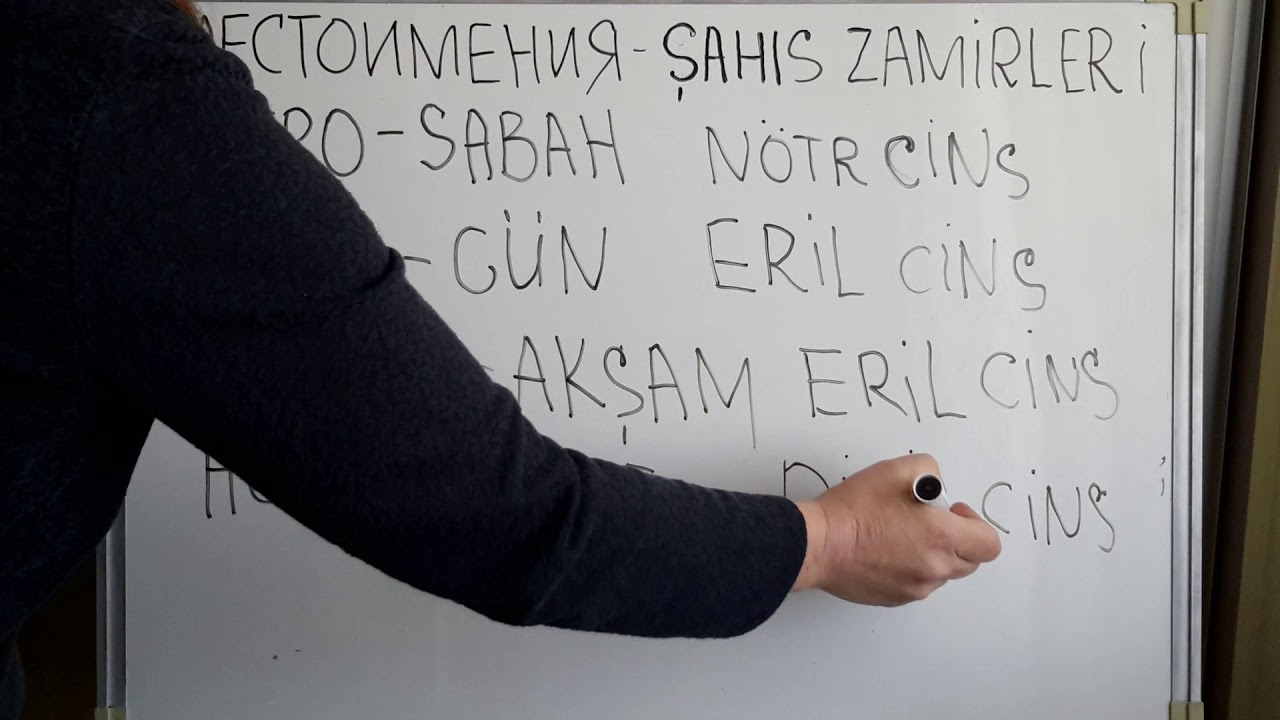 ЕСТОИМЕНИЯ-ŞAHIS ZAMİRLERİ
РО-SABAH NÖTR CİNS
- GÜN ERİL CİNS
AKŞAM ERİL CİNS
CİNS